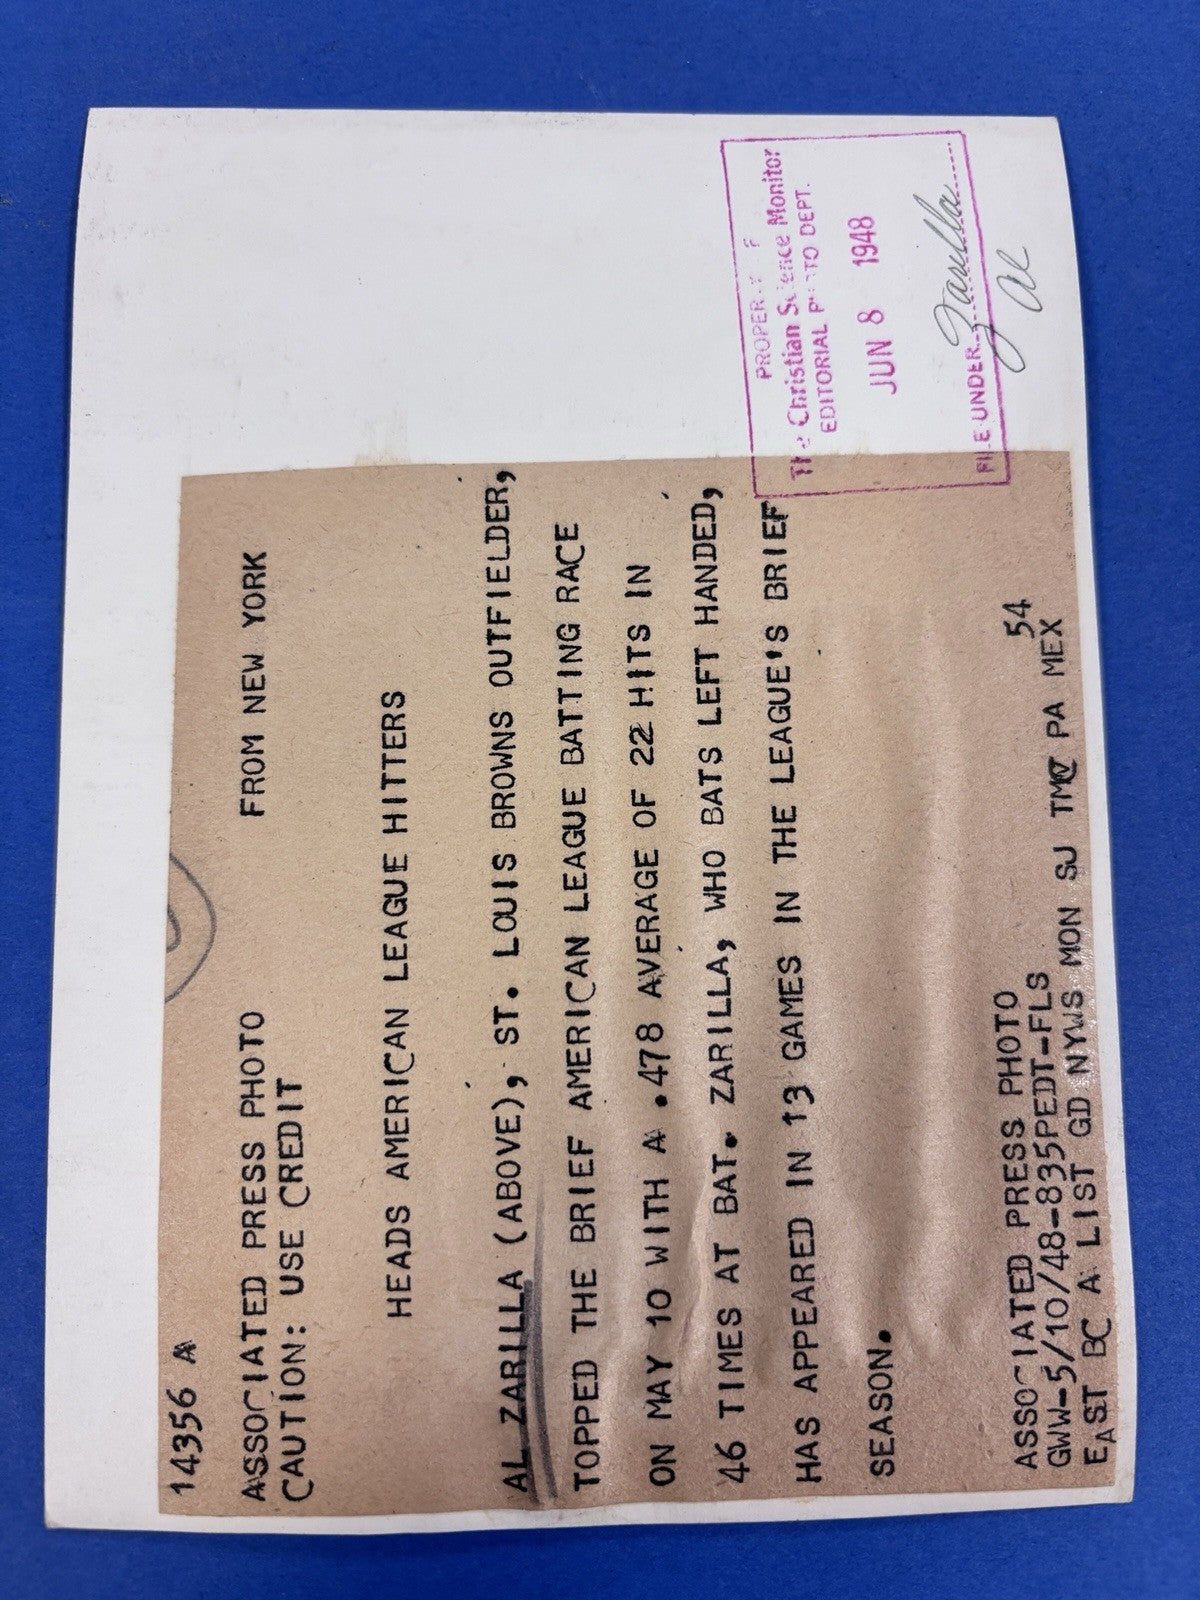 14356 A
ASSOCIATED PRESS PHOTO FROM NEW YORK
CAUTION: USE CREDIT
HEADS AMERICAN LEAGUE HITTERS
AL ZARILLA (ABOVE), ST. LOUIS BROWNS OUTFIELDER,
TOPPED THE BRIEF AMERICAN LEAGUE BATTING RACE
ON MAY 10 WITH A .478 AVERAGE OF 22 HITS IN
46 TIMES AT BAT. ZARILLA, WHO BATS LEFT HANDED,
HAS APPEARED IN 13 GAMES IN THE LEAGUE'S BRIEF
SEASON.
ASSOCIATED PRESS PHOTO 54
GWW-5/10/48-835PEDT-FLS
EAST BC A LIST GD NYWS MON SJ PA MEX
PROPERTY OF
The Christian Science Monitor
EDITORIAL PHOTO DEPT.
JUN 8 1948
FILE UNDER Zarilla
Al